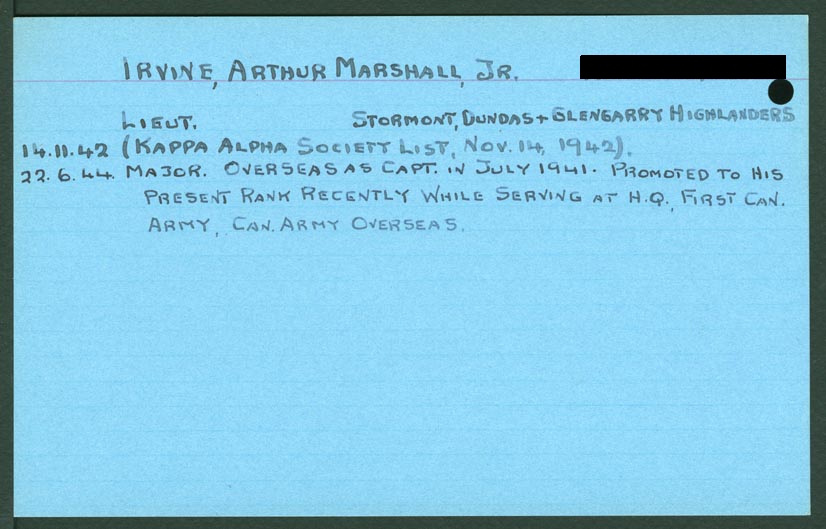 IRVINE, ARTHUR MARSHALL, JR.
LIEUT. STORMONT, DUNDAS + GLENGARRY HIGHLANDERS
14.11.42 (KAPPA ALPHA SOCIETY LIST, NOV. 14, 1942).
22.6.44 MAJOR. OVERSEAS AS CAPT. IN JULY 1941. PROMOTED TO HIS
PRESENT RANK RECENTLY WHILE SERVING AT H.Q., FIRST CAN.
ARMY, CAN. ARMY OVERSEAS.